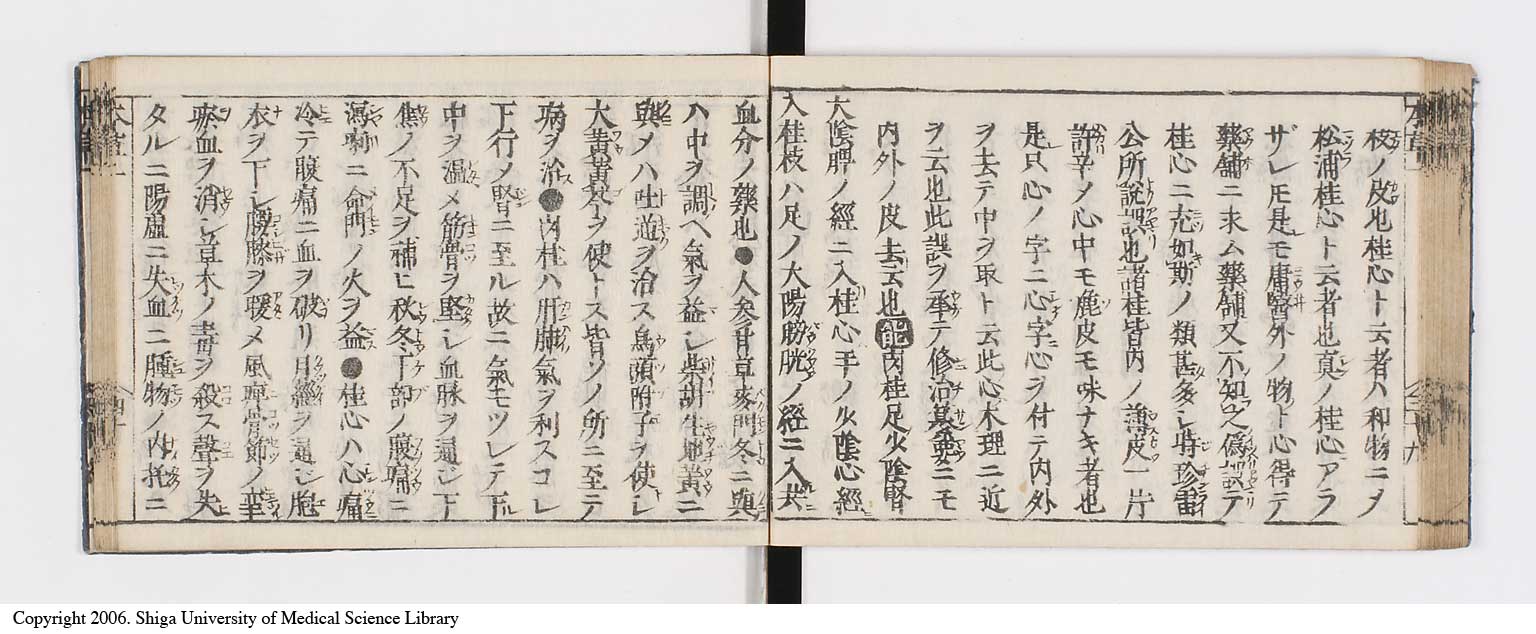 枝ノ皮也桂心ト云者ハ和物ニメ
松浦桂心ト云者也真ノ桂心アラ
ザレ𪜈是モ庸醫外ノ物ト心得テ
藥舗ニ求ム藥舗又不知之偽誤テ
桂心ニ充如斯ノ類甚多シ時珍雷
公所説誤也諸桂皆内ノ薄皮一片
許辛メ心中モ麁皮モ味ナキ者也
是只心ノ字ニ心字心ヲ付テ内外
ヲ去テ中ヲ取ト云此心木理ニ近
ヲ云也此誤ヲ承テ修治其薬ニモ
内外ノ皮去云也能肉桂足少陰腎
大陰脾ノ經ニ入桂心手ノ少陰心經
入桂枝ハ足ノ大陽膀胱ノ經ニ入共
血分ノ藥也●人参甘草麥門冬ニ與
ハ中ヲ調ヘ氣ヲ益シ柴胡生地黄ニ
與メハ吐逆ヲ治ス烏頭附子ヲ使シ
大黄黄芩ヲ使トス皆ソノ所ニ至テ
病ヲ治●肉桂ハ肝肺氣ヲ利スコレ
下行ノ腎ニ至ル故ニ氣モツレテ下
中ヲ温メ筋骨ヲ堅シ血脉ヲ通シ下
焦ノ不足ヲ補ヒ秋冬下部ノ腹痛ニ
瀉痢ニ命門ノ火ヲ益●桂心ハ心痛
冷テ腹痛ニ血ヲ破リ月經ヲ通シ胞
衣ヲ下シ腰膝ヲ暖メ風痺骨節ノ攣
瘀血ヲ消シ草木ノ毒ヲ殺ス聲ヲ失
タルニ陽虚ニ失血ニ腫物ノ内托ニ
Copyright 2006. Shiga University of Medical Science Library